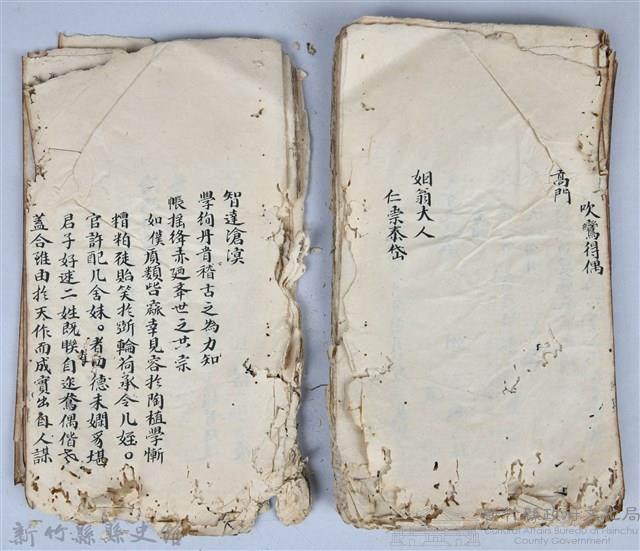 吹鸞得偶
高門
姻翁大人
仁雲泰岱
智達滄溟
學狥丹貴稽古之為力知
帳搖絳赤廻奔世之世宗
如僕頑類皆羸幸見容於陶植學慚
糟粕徒貽笑於斵輪荷承令儿姪。
官許配儿舍妹。者四德未嫻豈堪
君子好逑二姓既聯自迩鴛偶偕老
蓋合雖由於天作而成實出自人謀
新竹縣縣史館
新竹縣政府文化局
Cultural Affairs Bureau of Hsinchu
County Government